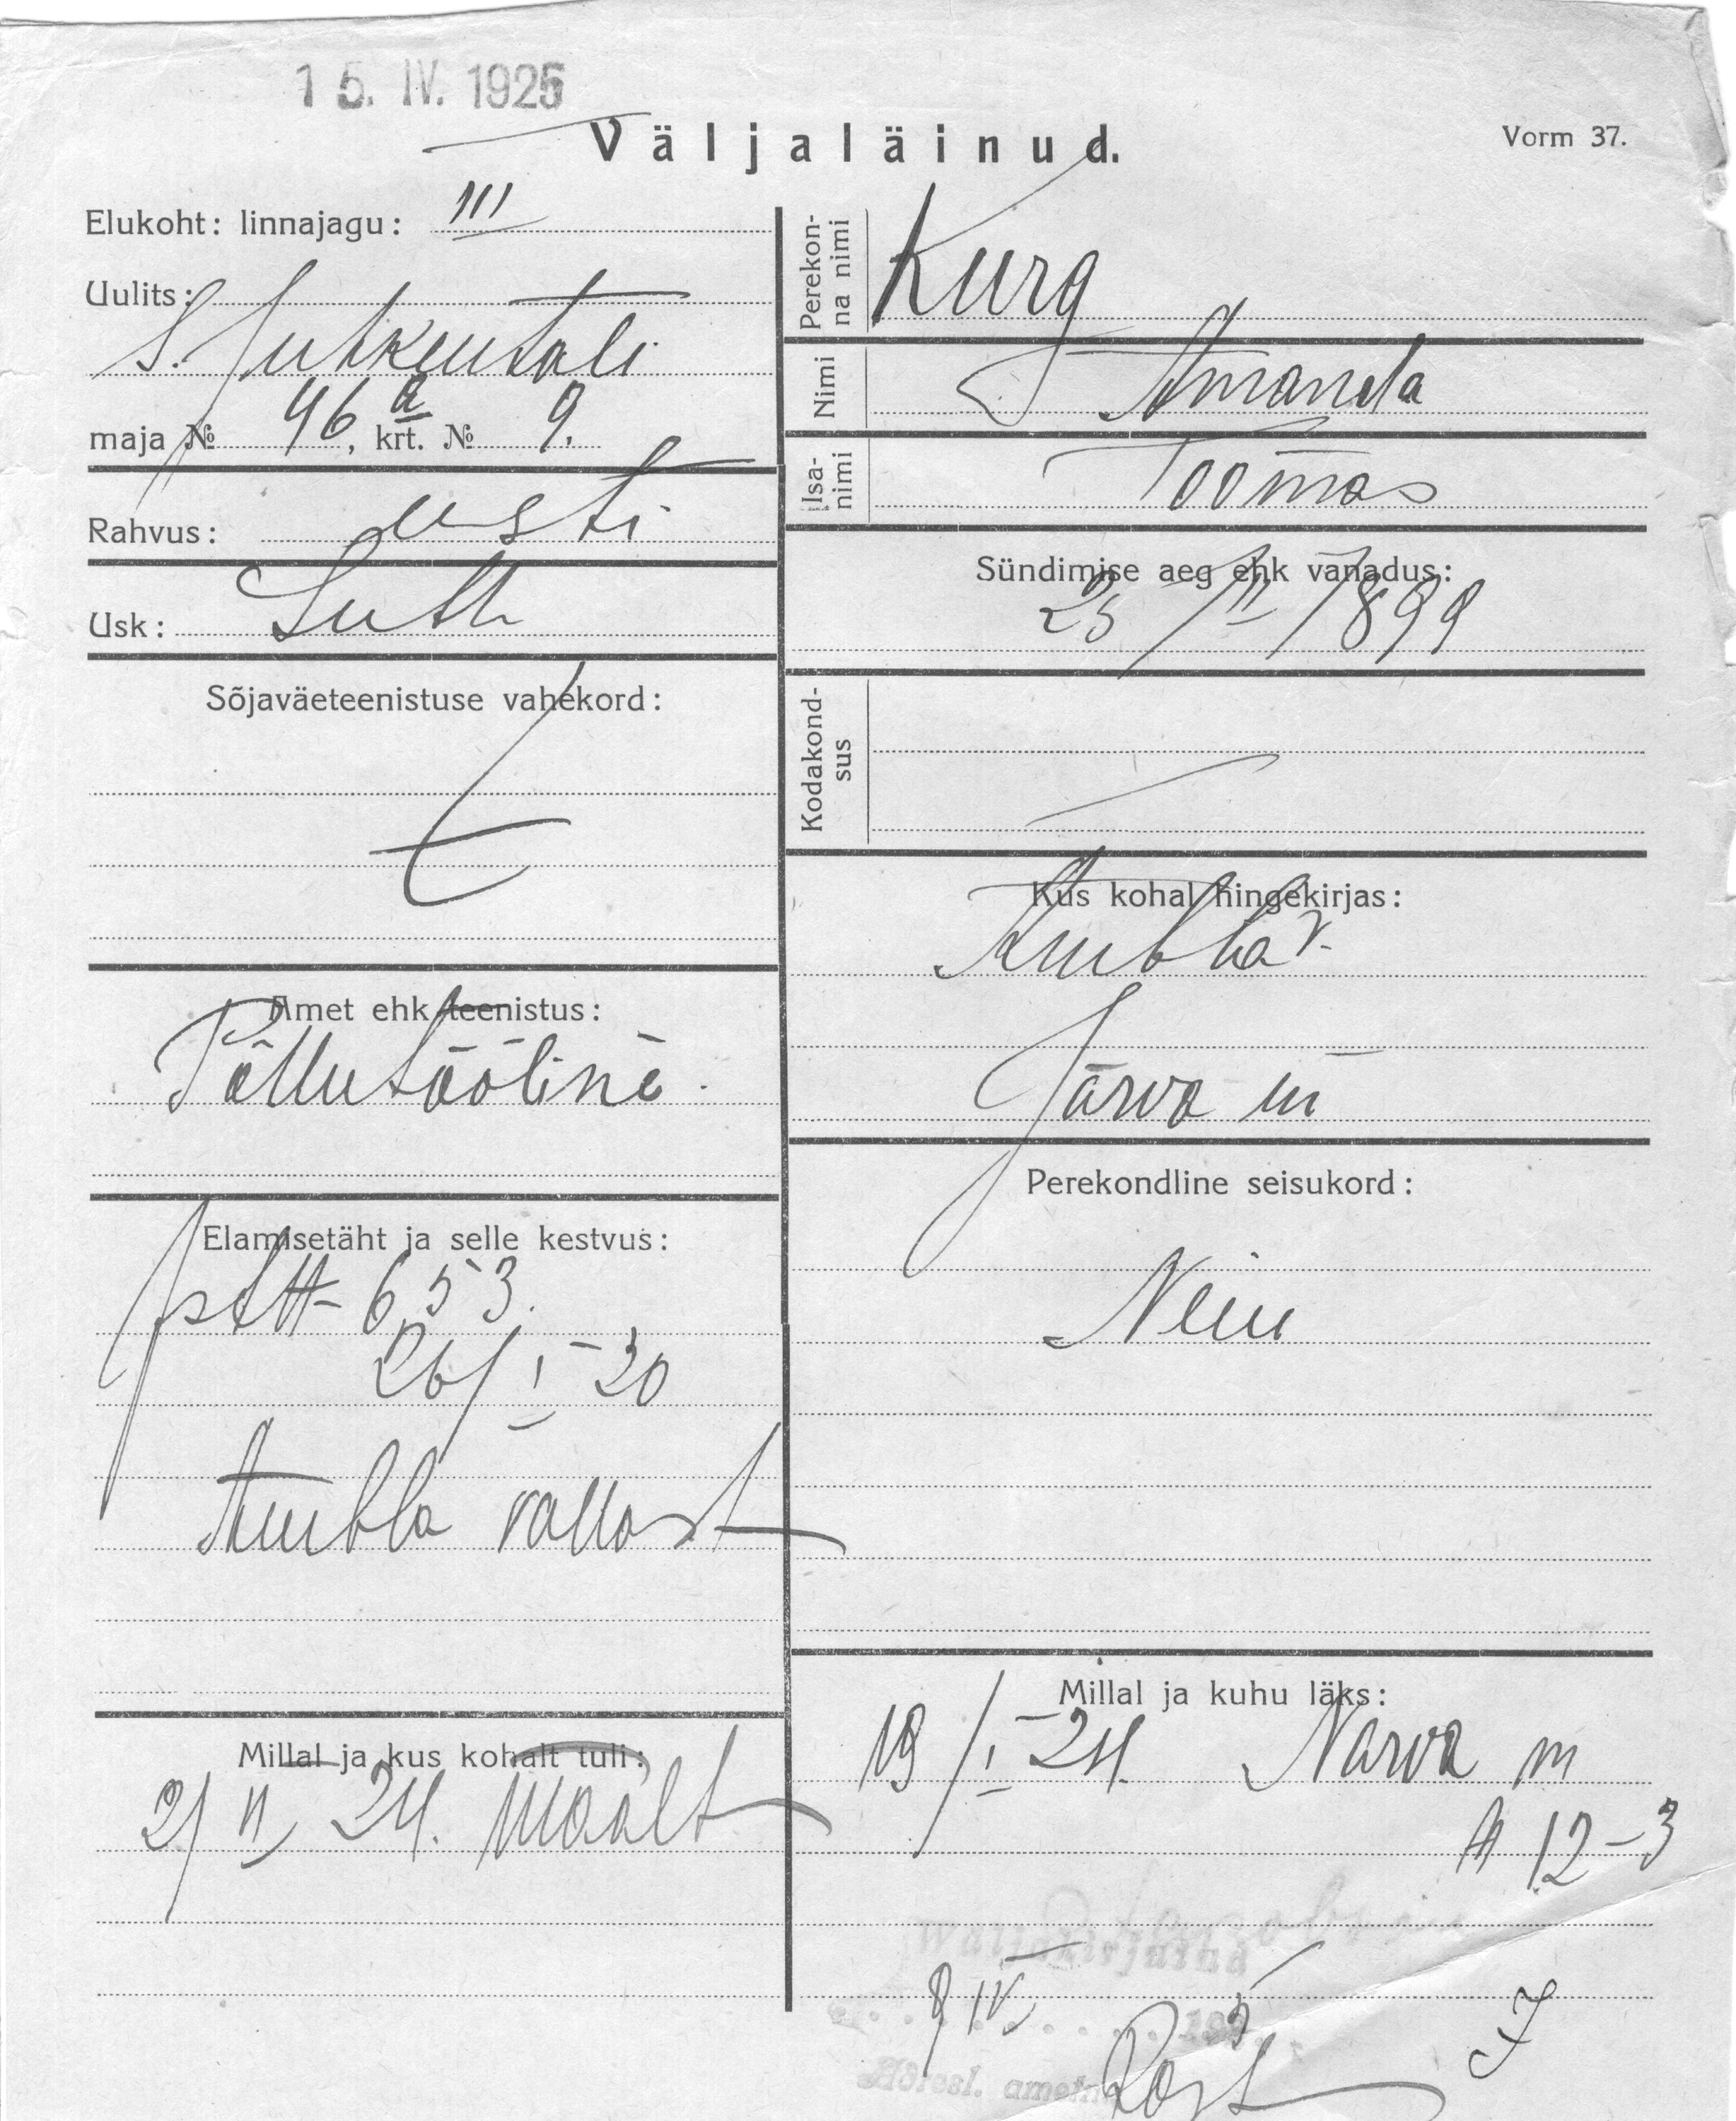 15. IV. 1925
Väljaläinud.
Vorm 37.
Elukoht: linnajagu: III
Uulits:
S. Juhkentali
maja № 46a, krt. № 9.
Rahvus: eesti
Usk: Luth
Sõjaväeteenistuse vahekord:
Amet ehk teenistus:
Põllutööline.
Elamisetäht ja selle kestvus:
653.
26/I-20
Ambla vallast
Millal ja kus kohalt tuli:
2/II 24. Maalt
Perekonna nimi
Kurg
Nimi
Amanda
Isanimi
Toomas
Sündimise aeg ehk vanadus:
25/II 1899
Kodakondsus
Kus kohal hingekirjas:
Ambla v.
Järva m
Perekondline seisukord:
Neiu
Millal ja kuhu läks:
19/I-24. Narva m
12-3
Wäljakirjutud
9 IV 1925